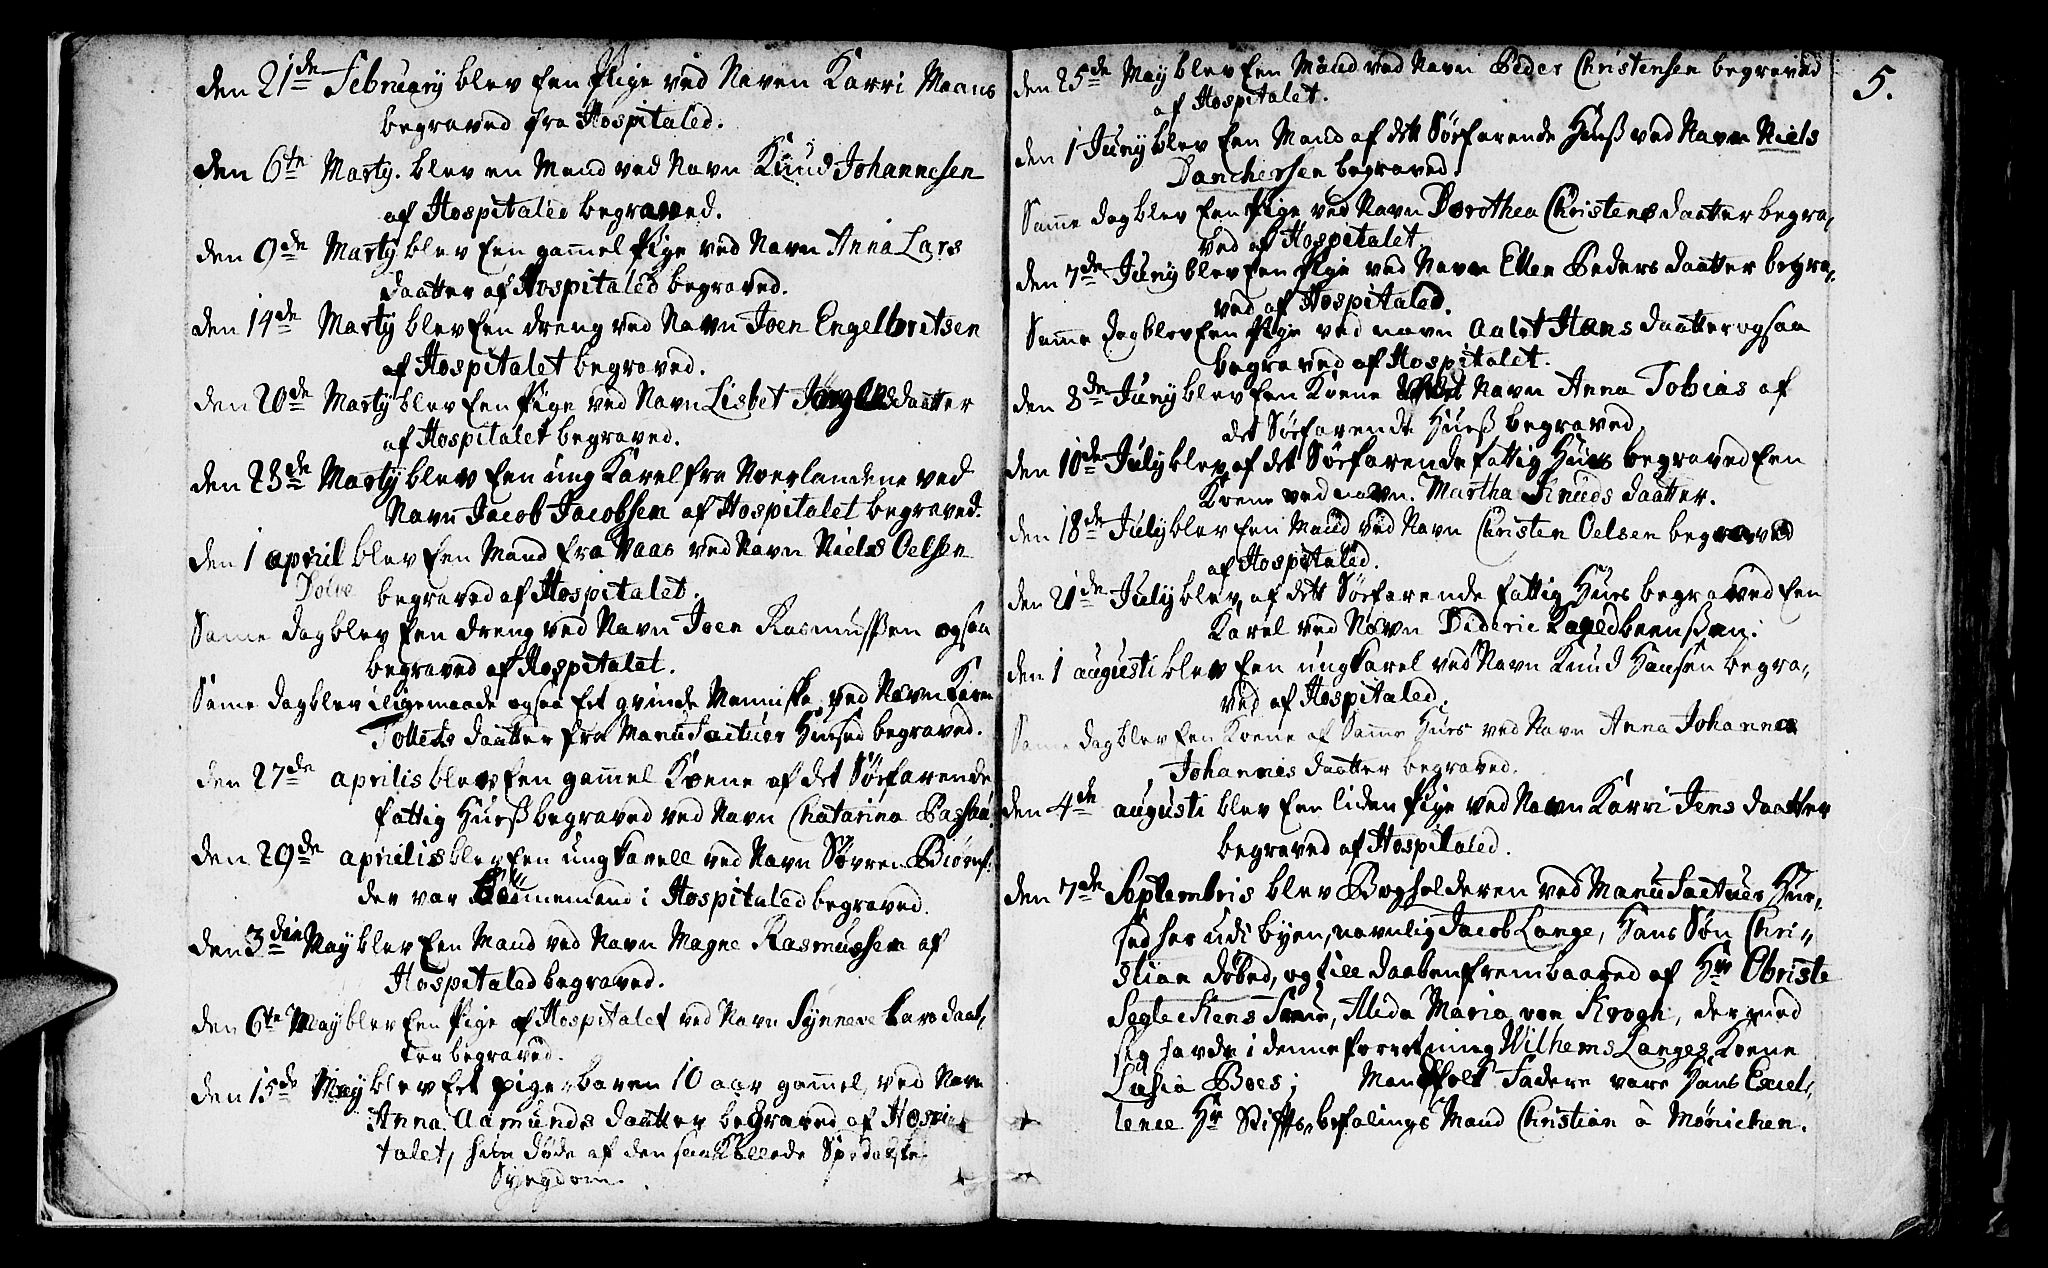 den 21de February blev Een Pige ved Naven Karri Maans
begraved fra Hospitaled.
den 6te Marty. blev en Mand ved Navn Knud Johannesen
af Hospitaled begraved.
den 9de Marty blev Een gam̄el Pige ved Navn Anna Lars
daatter af Hospitaled begraved.
den 14de Marty blev Een dreng ved Navn Joen Engelbritsen
af Hospitalet begraved.
den 20de Marty blev Een Pige ved Navn Lisbet daatter
af Hospitalet begraved.
den 23de Marty blev Een ung Karel fra Noerlandene ved
Navn Jacob Jacobsen af Hospitalet begraved.
den 1 april blev Een Mand fra Vaas ved Navn Niels Oelsen
Dolve begraved af Hospitalet.
Sam̄e dag blev Een dreng ved Navn Joen Rasmussen ogsaa
begraved af Hospitalet.
Sam̄e dag blev iligemaade ogsaa Eet qvinde Menniske ved Navn Karen
Tollets daatter fra Manufactuer Huused begraved.
den 27de aprilis blev Een gam̄el Koene af det Søefarende
fattig Huusß begraved ved Navn Chatarina Passau.
den 29de aprilis blev Een ung Karell ved Navn Søvren Biørns.
der var i Hospitaled begraved.
den 3die May blev Een Mand ved Navn Magne Rasmussen af
Hospitaled begraved.
den 6te May blev Een Pige af Hospitalet ved Navn Synneve Lars daat,
ter begraved.
den 15de May blev Eet pige-baren 10 aar gam̄el, ved Navn
Anna Aamunds daatter begraved af Hospi
talet, hun døde af den saa Kallede Spedalske
Sygdom.
5.
den 25de May blev Een Mand ved Navn Peder Christensen begraved
af Hospitalet.
den 1 Juny blev Een Mand af dett Søefarende Huusß ved Navn Niels
Danchersen begraved.
Sam̄e dag blev Een Pige ved Navn Dorothea Christens daatter begra,
ved af Hospitalet.
den 7de Juny blev Een Pige ved Navn Ellen Peders daatter begra,
ved af Hospitaled.
Sam̄e dag blev Een Pige ved navn Aalet Hans daatter ogsaa
begraved af Hospitalet.
den 8de Juny blev Een Koene ved Navn Anna Tobias af
det Søefarende Huusß begraved.
den 10de July blev af det Søefarende fattig Huus begraved Een
Koene ved navn. Martha Knuds daatter.
den 18de July blev Een Mand ved Navn Christen Oelsen begraved
af Hospitaled.
den 21de July blev af dett Søefarende fattig Huus begraved Een
Karel ved Navn Dideric
den 1 augusti blev Een ung Karel ved Navn Knud Hansen begra,
ved af Hospitaled.
Sam̄e dag blev Een Koene af Sam̄e Huus ved Navn Anna Johanna
Johannis daatter begraved.
den 4de augusti blev Een liden Pige ved Navn Karri Jens daatter
begraved af Hospitaled.
den 7de Septembris blev Bogholderen ved Manufactuer Huu,
sed her udi byen, navnlig Jacob Lange, Hans Søn Chri,,
stian døbed, og till daaben frembaared af Hr Obriste
Segleckens Frue, Alida Maria von Krogh, der med
sig havde i denne forretning Wilhems Langes Koene
Lusia Boes; Mandfolk Fadere vare Hans Excel,
lence Hr Stiffts-befalings Mand Christian á Mønichen.